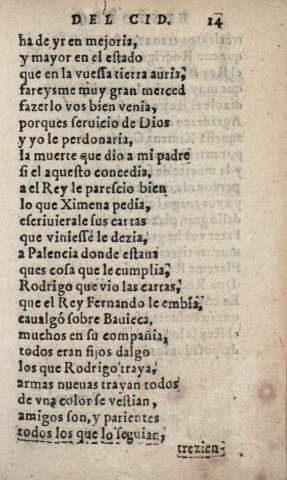 DEL CID. 14
ha de yr en mejoria,
y mayor en el estado
que en la vuessa tierra auria,
fareysme muy gran merced
fazerlo vos bien venia,
porques seruicio de Dios
y yo le perdonaria,
la muerte que dio a mi padre
si el aquesto concedia,
a el Rey le parescio bien
lo que Ximena pedia,
escriuierale sus cartas
que viniesse le dezia,
a Palencia donde estaua
ques cosa que le cumplia,
Rodrigo que vio las cartas,
que el Rey Fernando le embia,
caualgó sobre Bauieca,
muchos en su compañia,
todos eran fijos dalgo
los que Rodrigo traya,
armas nueuas trayan todos
de vna color se vestian,
amigos son, y parientes
todos los que lo seguian,
trezien-